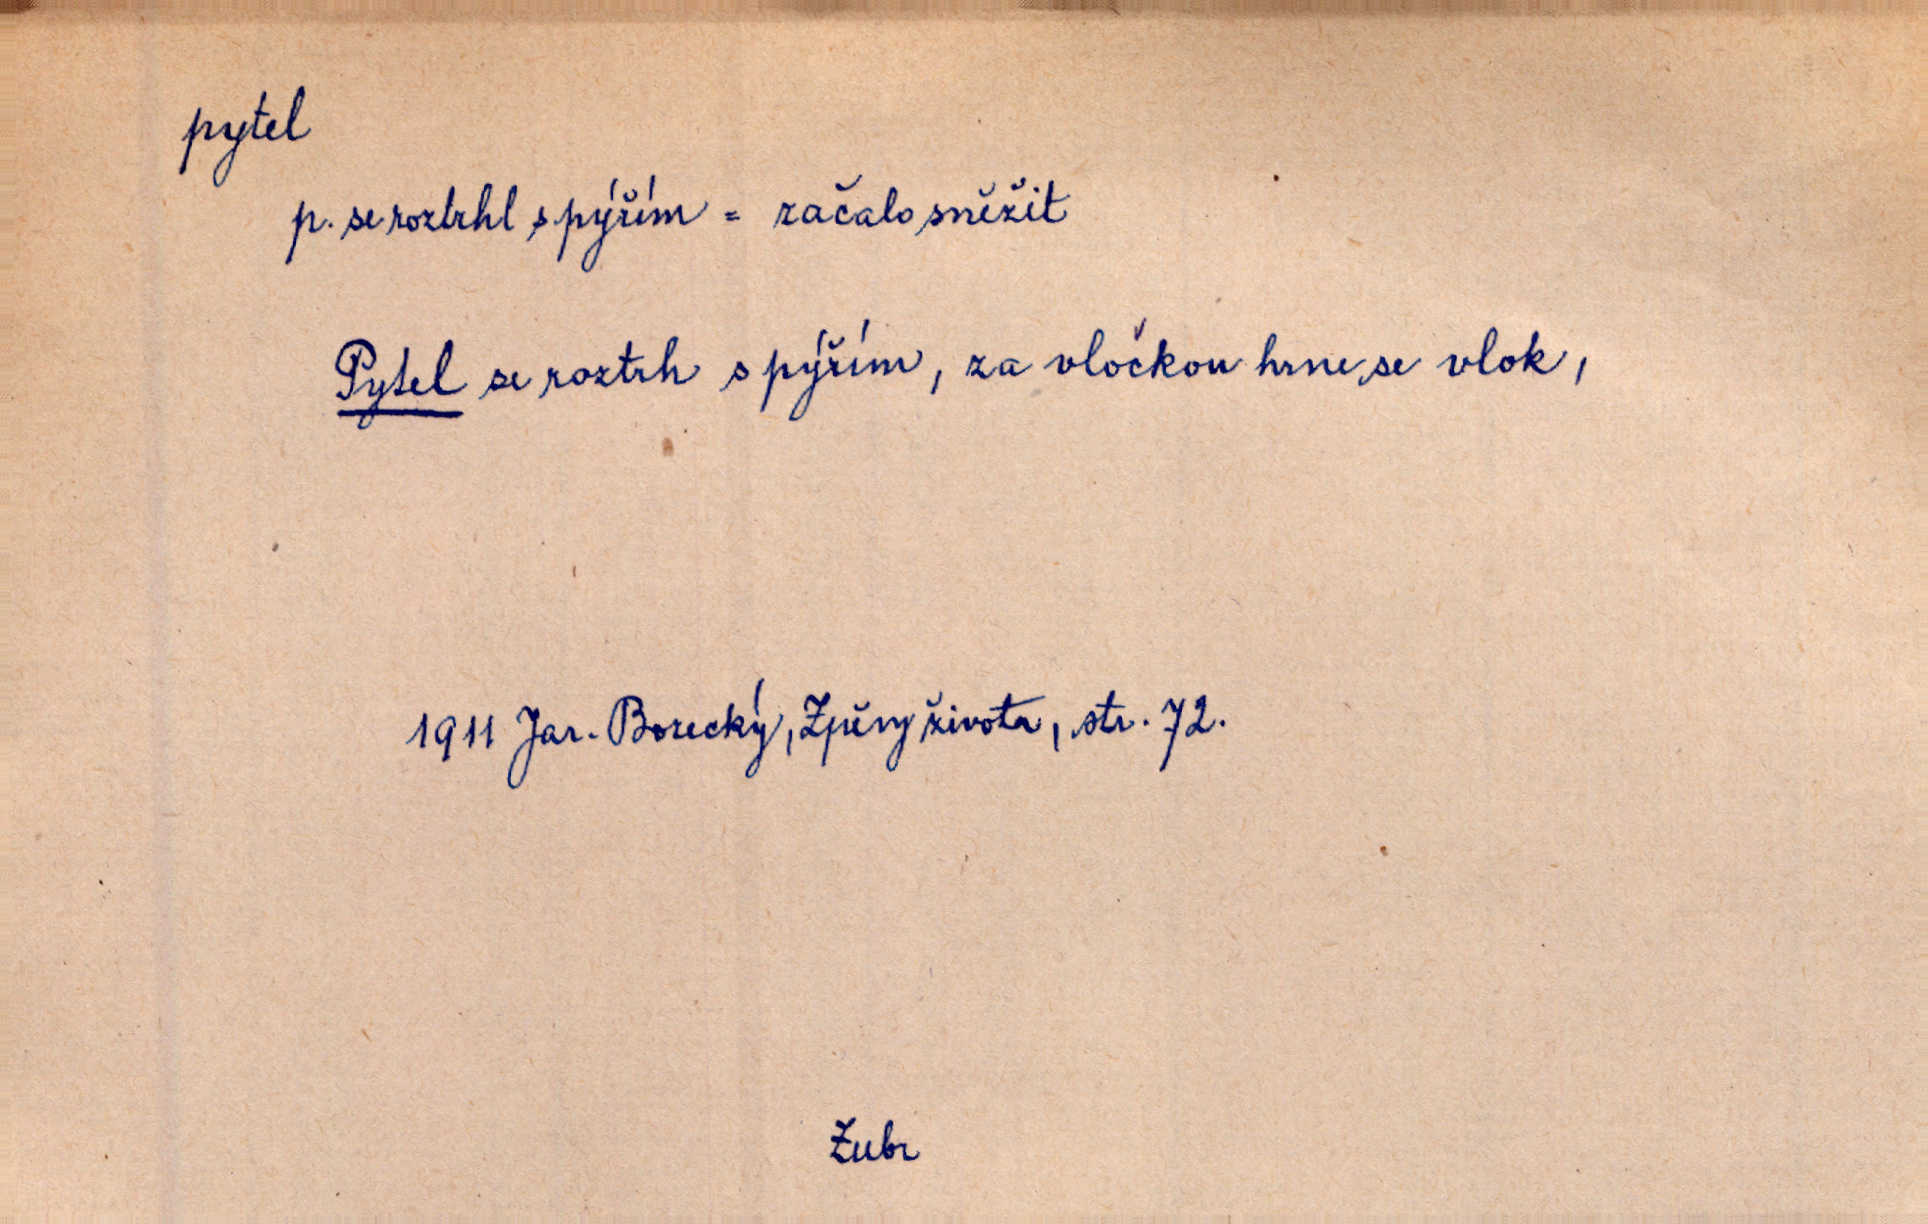 pytel
p. se roztrhl s pýřím = začalo sněžit
Pytel se roztrh s pýřím, za vločkou hrne se vlok,
1911 Jar. Borecký, Zpěvy života, str. 72.
Zubr